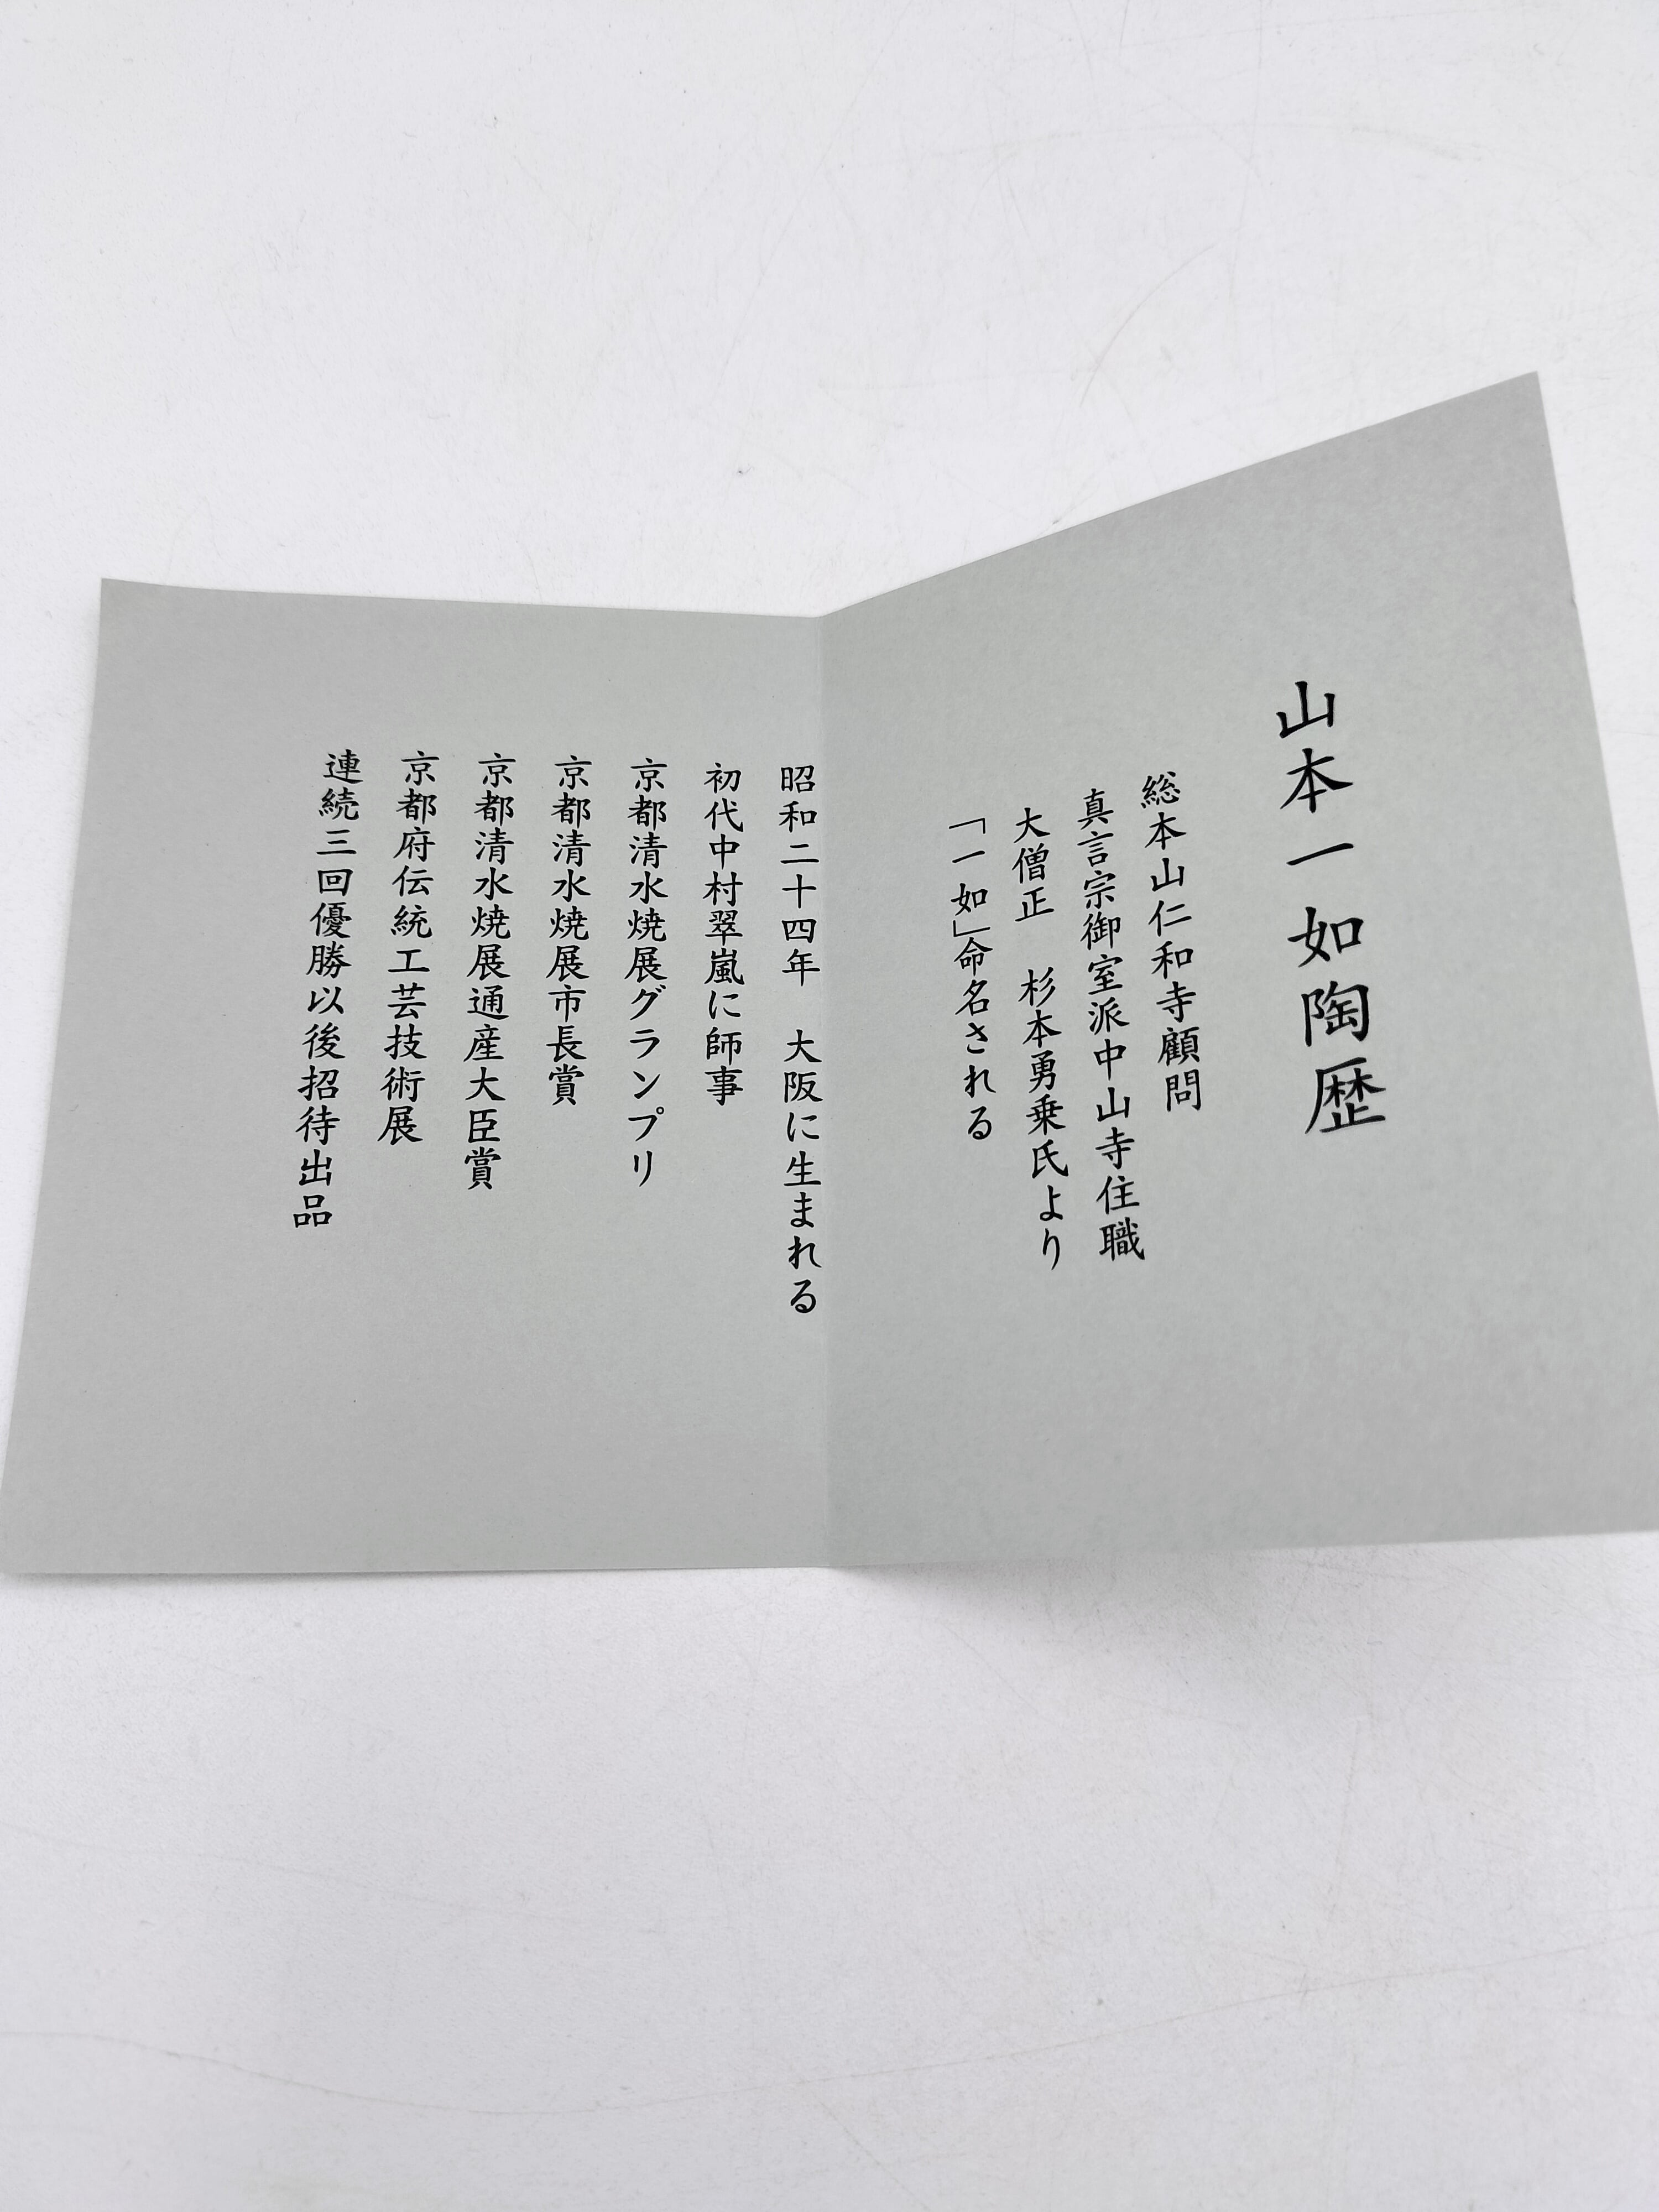 山本一如陶歴
総本山仁和寺顧問
真言宗御室派中山寺住職
大僧正　杉本勇乗氏より
「一如」命名される
昭和二十四年　大阪に生まれる
初代中村翠嵐に師事
京都清水焼展グランプリ
京都清水焼展市長賞
京都清水焼展通産大臣賞
京都府伝統工芸技術展
連続三回優勝以後招待出品